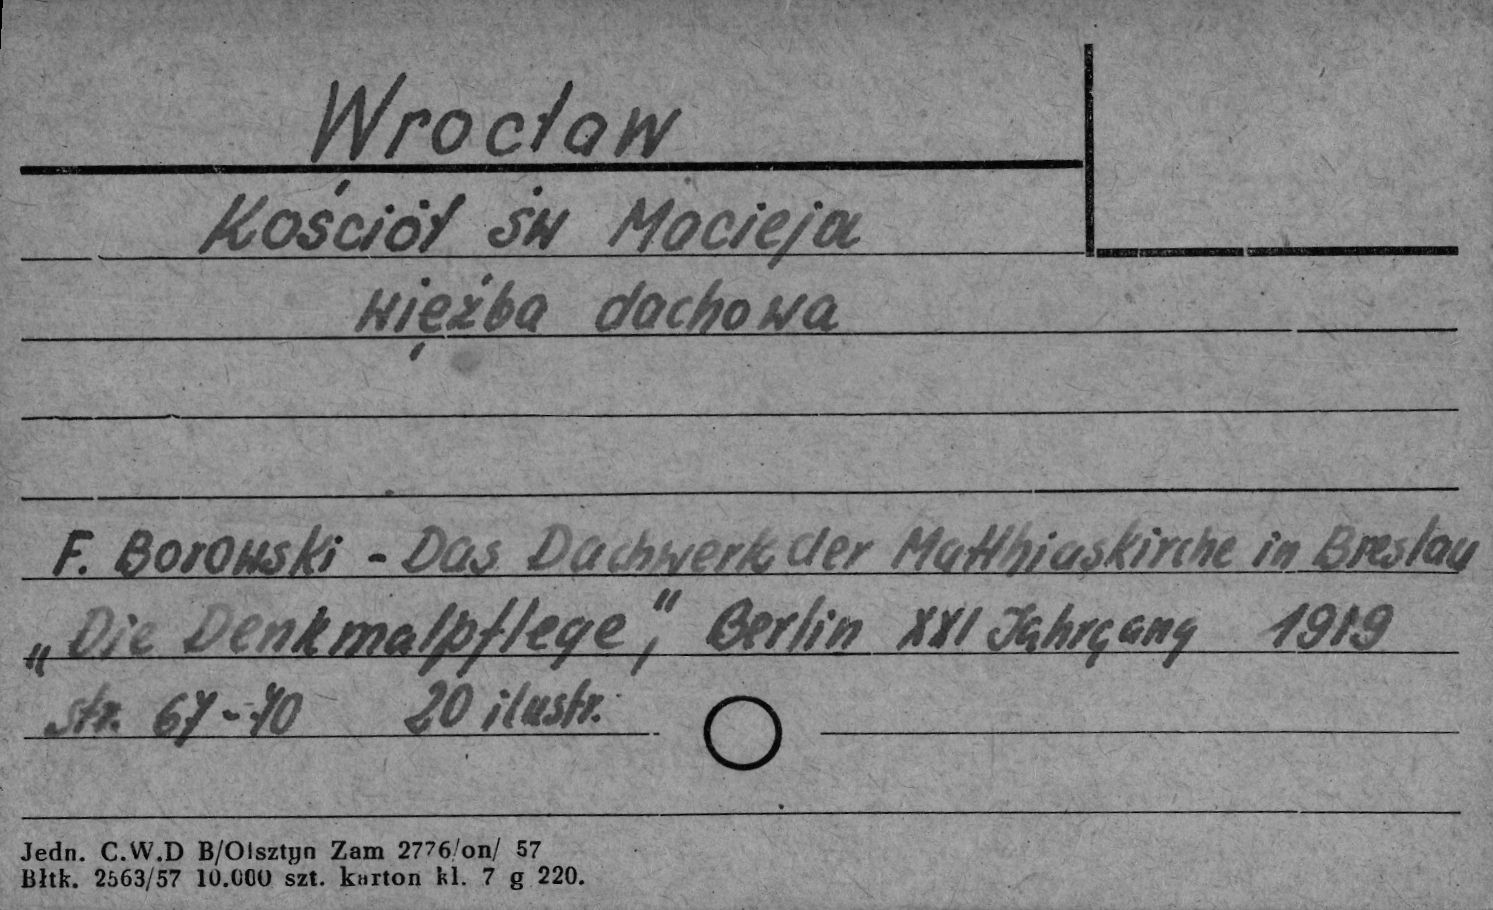 Wrocław
Kościół św Macieja
więźba dachowa
F. Borowski - Das Dachwerk der Matthiaskirche in Breslau
„Die Denkmalpflege”, Berlin XXI Jahrgang 1919
str. 67-70 20 ilustr.
Jedn. C.W.D B/Olsztyn Zam 2776/on/ 57
Błtk. 2563/57 10.000 szt. karton kl. 7 g 220.